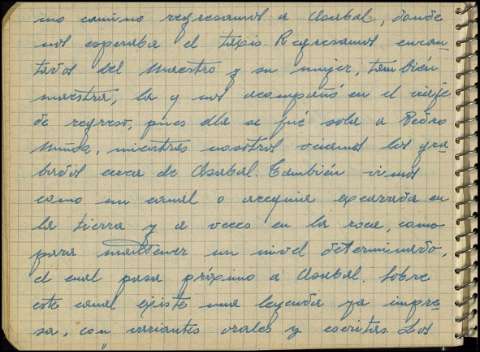 mo camino regresamos a Asabal, donde
nos esperaba el taxis. Regresamos encan-
tados del maestro y su mujer, también
maestra, la q nos acompañó en el viaje
de regreso, pues ella se fué sola a Pedro
Muñoz, mientras nosotros veíamos los gra-
bados cerca de Asabal. También vimos
como un canal o acequia excavada en
la tierra y a veces en la roca, como
para mantener un nivel determinado,
el cual pasa próximo a Asabal. Sobre
este canal existe una leyenda ya impre-
sa, con variantes orales y escritas. Los